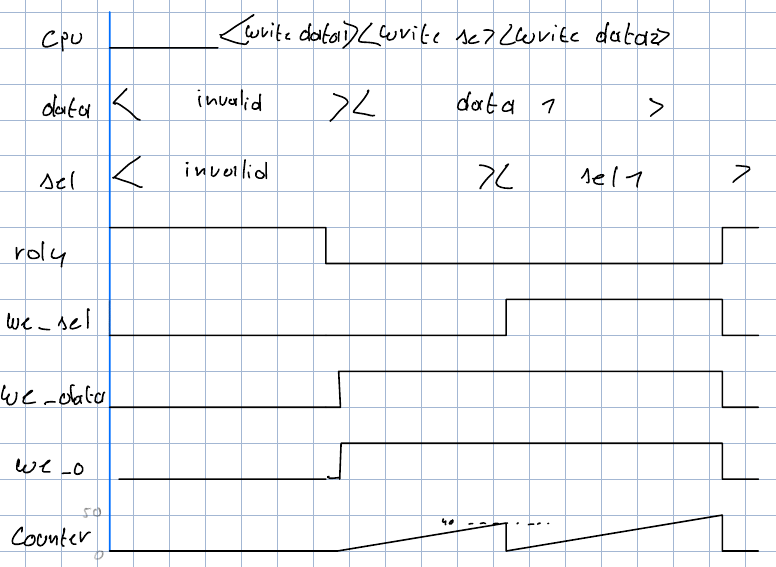 CPU <write data1><write sel><write data2>
data < invalid >< data 1 >
sel < invalid >< sel 1 >
rdy
we_sel
we_data
we_o
50
40
Counter
0